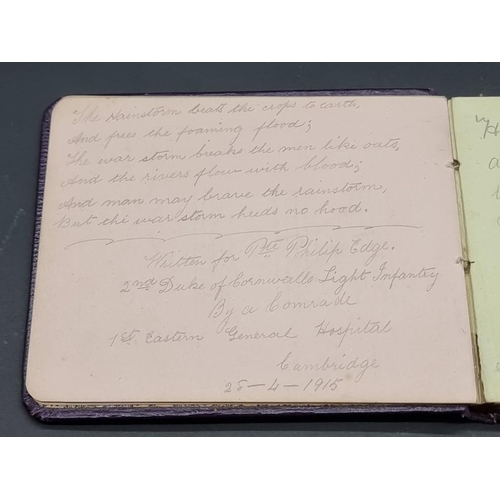 The rainstorm beats the crops to earth,
And frees the foaming flood;
The war storm breaks the men like oats,
And the rivers flow with blood;
And man may brave the rainstorm,
But the war storm heeds no hood.
Written for Pte Philip Edge.
2nd Duke of Cornwalls Light Infantry
By a Comrade
1st. Eastern General Hospital
Cambridge
28-4-1915